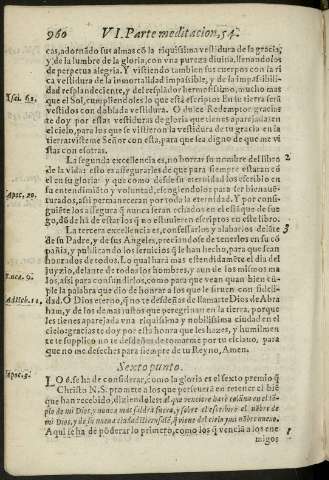 960 VI. Parte meditacion, 54.
cas, adornãdo sus almas cõ la riquissima vestidura de la gracia,
y de la lumbre de la gloria, con vna pureza diuina, llenandolos
de perpetua alegria. Y vistiendo tambien sus cuerpos con la ri
ca vestidura de la inmortalidad impassible, y de la impassibili-
dad resplandeciente, y del resplãdor hermosissimo, mucho mas
que el Sol, cumpliendo lo que està escripto: En su tierra serã
Isai. 61.
vestidos con doblada vestidura. O dulce Redemptor gracias
te doy por estas vestiduras de gloria que tienes aparejadas en
el cielo, para los que se vistieron la vestidura de tu gracia en la
tierra: visteme Señor con esta, para que sea digno de que me vi
stas con essotras.
La segunda excellencia es, no borrar su nombre del libro
2
de la vida: esto es assegurarles de que para siempre estaran cõ
el en su gloria: y que como desde su eternidad los escribio en
su entendimiẽto y voluntad, escogiendolos para ser bienauẽ-
Apoc. 20.
turados, assi permaneceran por toda la eternidad. Y por consi-
guiẽte los assegura q̃ nunca seran echados en el estãque de fue
go, dõde hã de estar los q̃ no estuuieren escriptos en este libro.
La tercera excellencia es, confessarlos y alabarlos delãte
3
de su Padre, y de sus Angeles, preciandose de tenerlos en su cõ
pañia, y publicando los seruicios q̃ le han hecho, para que sean
honrados de todos. Lo qual harà mas estendidamẽte el dia del
juyzio, delante de todos los hombres, y aun de los mismos ma
los, assi para confundirlos, como para que vean quan bien cũ-
Luc. 9.
ple la palabra que dio de honrar a los que le siruen con fideli-
dad. O Dios eterno, q̃ no te desdeñas de llamarte Dios de Abra
Ad Heb. 11.
ham, y de los demas justos que peregrinan en la tierra, porque
les tienes aparejada vna riquissima y nobilissima ciudad en el
cielo: gracias te doy por esta honra que les hazes, y humilmen
te te supplico no te desdeñes de tomarme por tu esclauo, para
que no me deseches para siempre de tu Reyno, Amen.
Sexto punto.
Apoc. 3.
LO 6. se ha de considerar, como la gloria es el sexto premio q̃
Christo N. S. promete a los que perseuerã en retener el biẽ
que han recebido, diziendoles: al que venciere harè coluna en el tẽ-
plo de mi Dios, y nunca mas saldrà fuera, y sobre el escribirè el nõbre de
mi Dios, y de la nueua ciudad Ierusalẽ, q̃ viene del cielo y mi nõbre nueuo.
Aqui se ha de põderar lo primero, como los q̃ vencẽ a los ene
1
migos